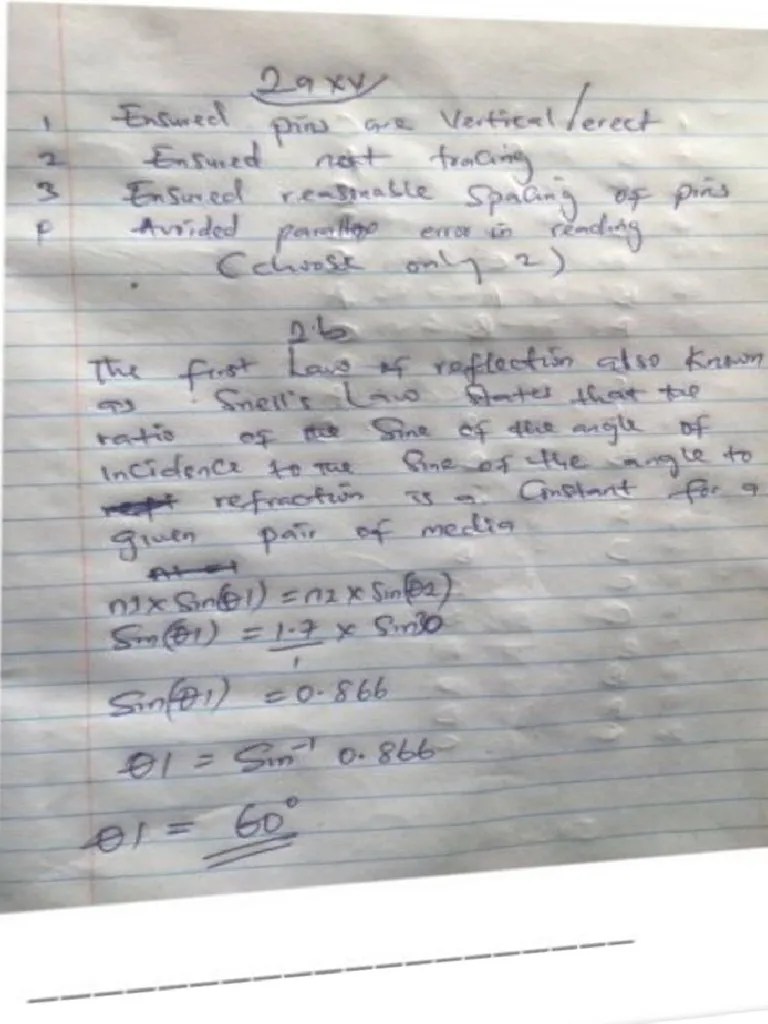 2a xv
1 Ensured pins are vertical/erect
2 Ensured neat tracing
3 Ensured reasonable spacing of pins
Avoided parallax error in reading
(choose only 2)
2.b
The first Law of reflection also known
as Snell's Law states that the
ratio of the Sine of the angle of
incidence to the Sine of the angle to
refraction is a Constant for a
given pair of media
n1 x Sin(θ1) = n2 x Sin(θ2)
Sin(θ1) = 1.7 x Sin30
1
Sin(θ1) = 0.866
θ1 = Sin⁻¹ 0.866
θ1 = 60°